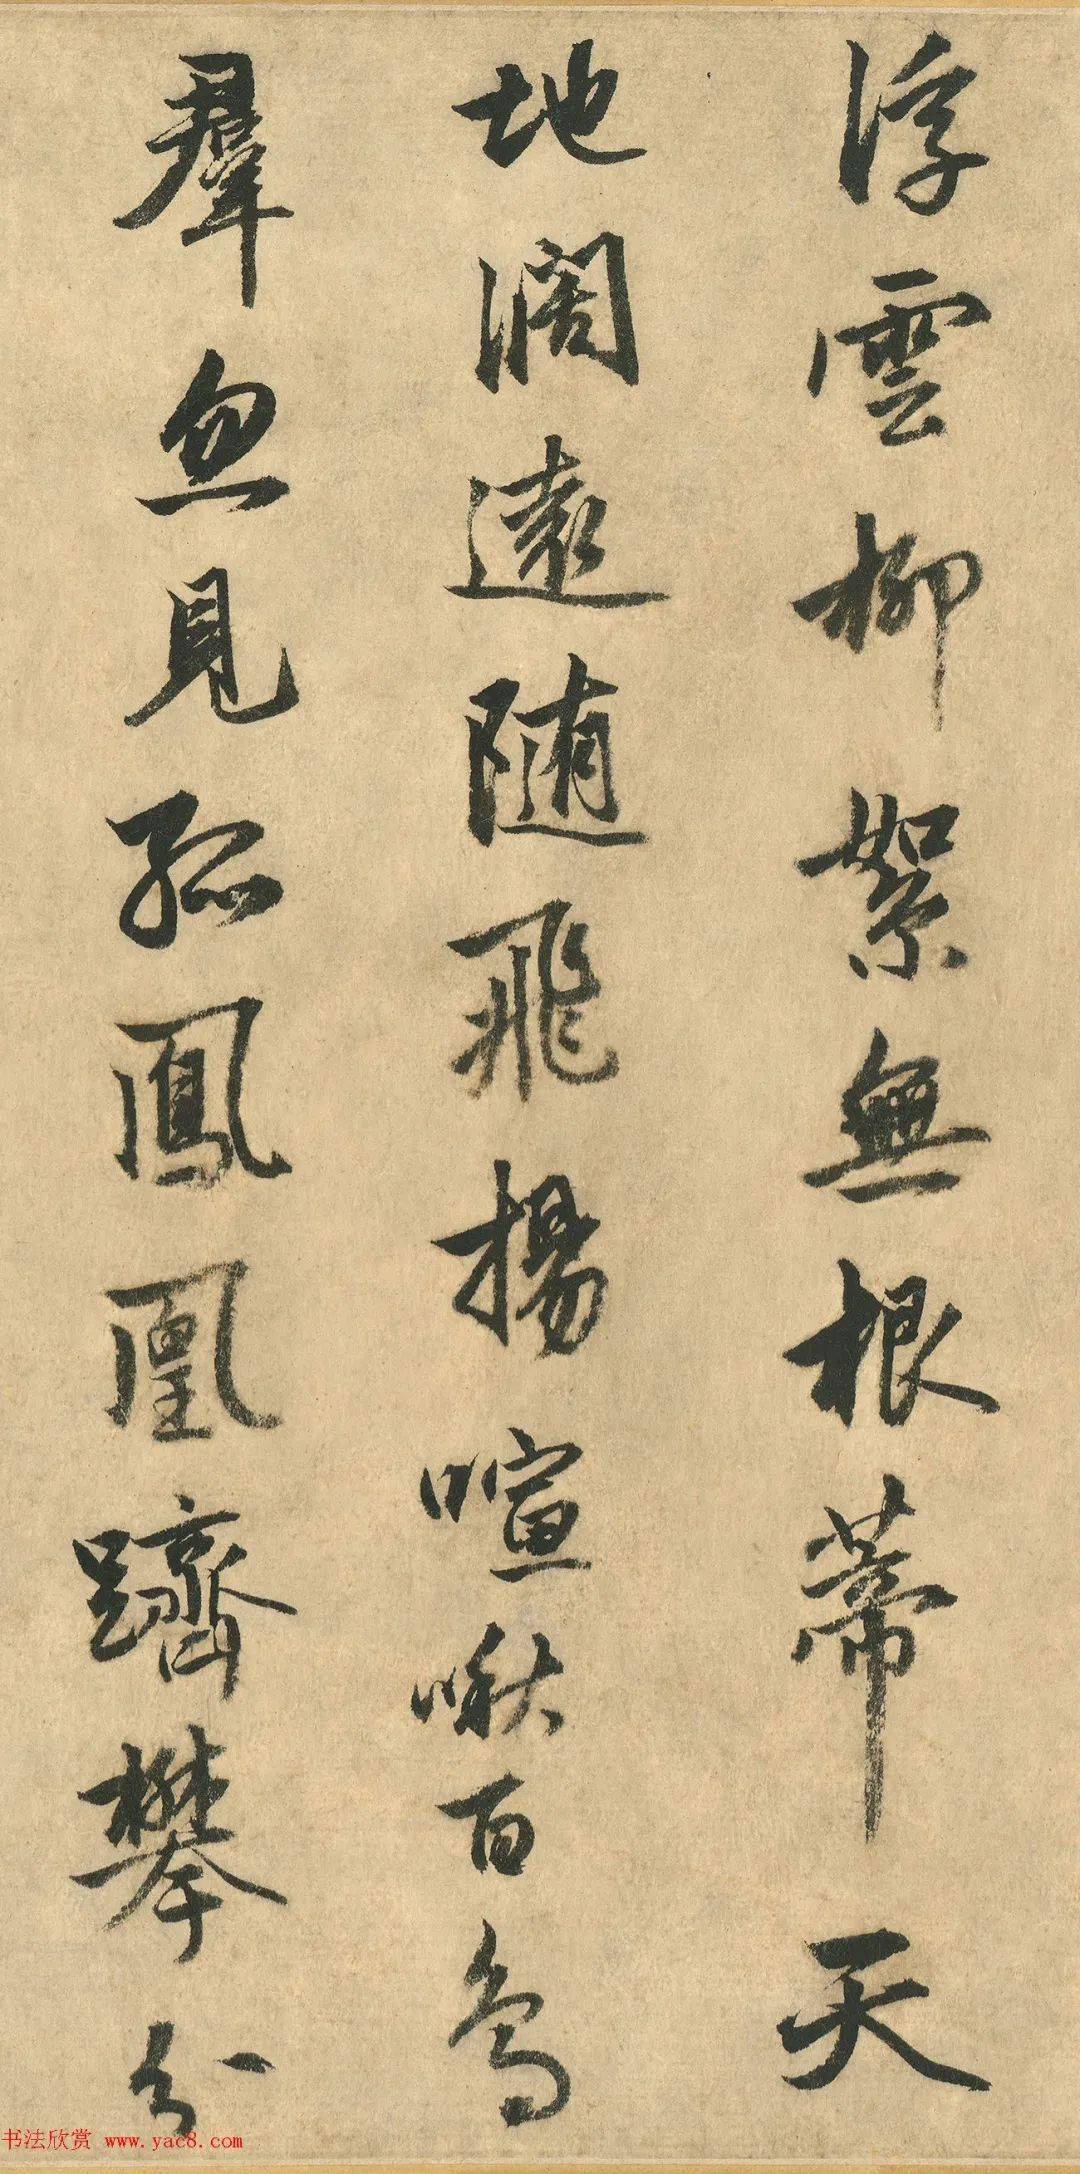 浮雲柳絮無根蒂天
地闊遠隨飛揚喧啾百鳥
羣忽見孤鳳凰躋攀分
书法欣赏 www.yac8.com